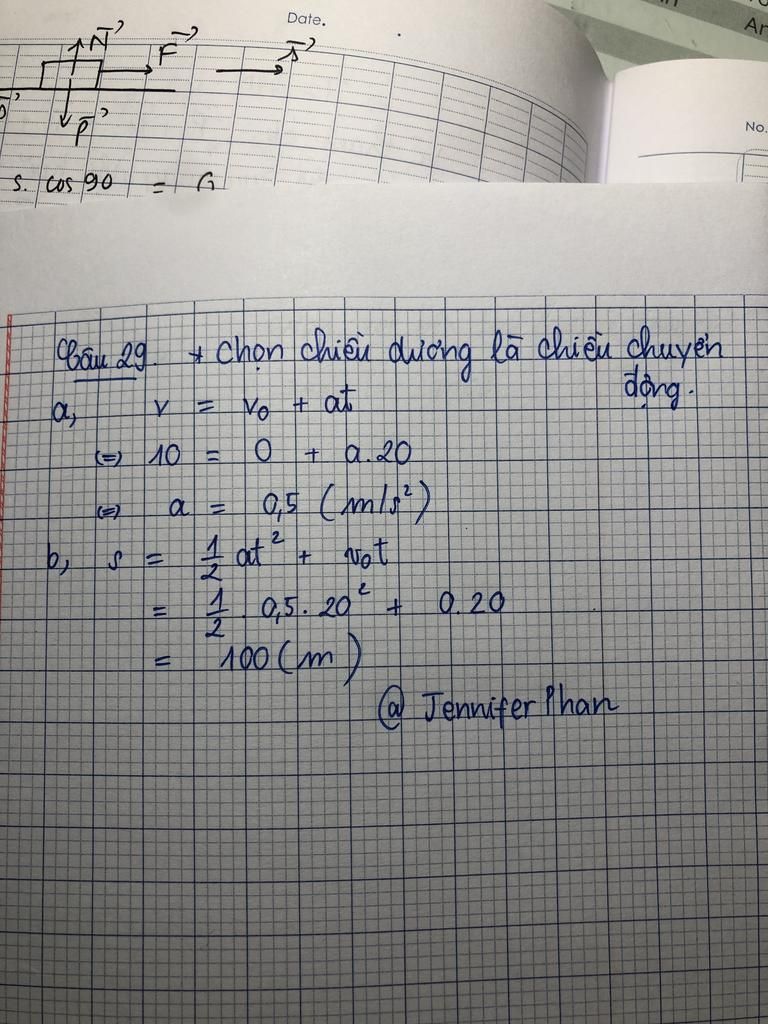 Date.
Ar
No.
N
F
s
P
s. cos 90 =
Câu 29. * Chọn chiều dương là chiều chuyển
động.
a, v = v₀ + at
(=) 10 = 0 + a.20
(=) a = 0,5 (m/s²)
b, s = 1/2 at² + v₀t
= 1/2 . 0,5. 20² + 0.20
= 100 (m)
@ Jennifer Phan